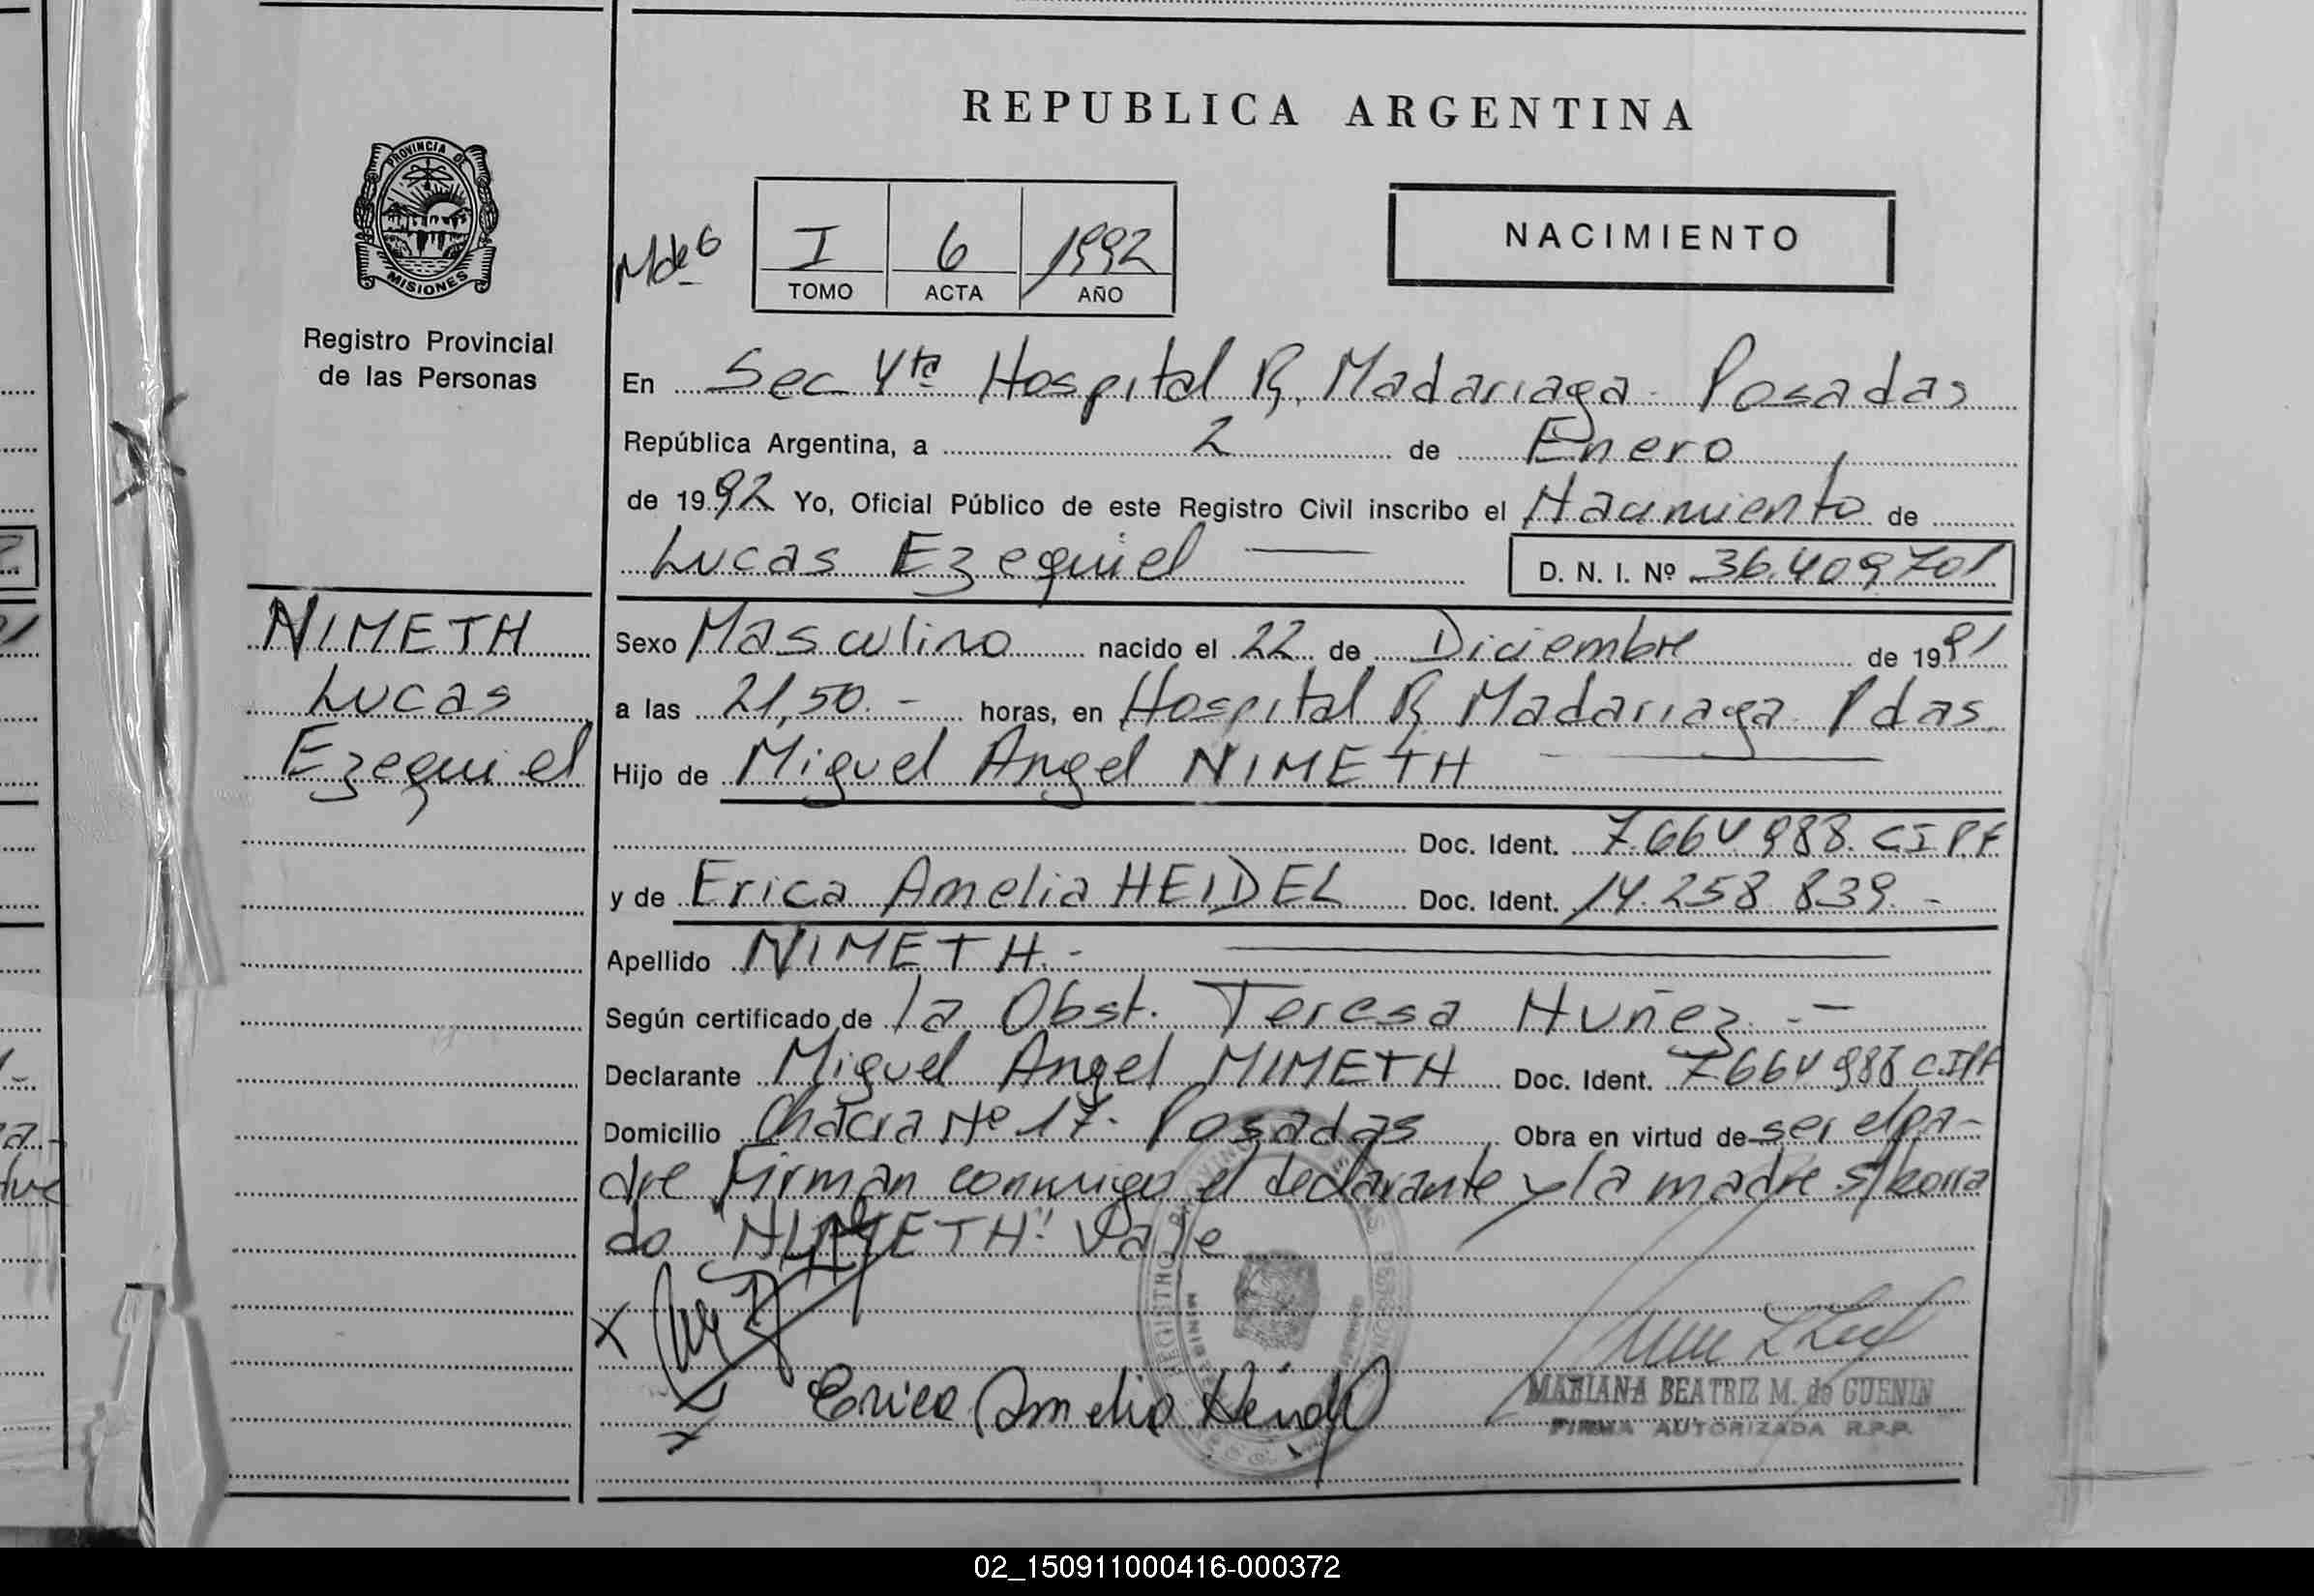 REPUBLICA ARGENTINA
PROVINCIA DE
MISIONES
Registro Provincial
de las Personas
I 6 1992
TOMO ACTA AÑO
NACIMIENTO
En Sec 4ta Hospital R. Madariaga - Posadas
República Argentina, a 2 de Enero
de 1992 Yo, Oficial Público de este Registro Civil inscribo el Nacimiento de
Lucas Ezequiel D. N. I. Nº 36.409701
NIMETH
Lucas
Ezequiel
Sexo Masculino nacido el 22 de Diciembre de 1991
a las 21,50.- horas, en Hospital R. Madariaga Pdas.
Hijo de Miguel Angel NIMETH
Doc. Ident. 7.664988. CI P.F
y de Erica Amelia HEIDEL Doc. Ident. 14.258.839.-
Apellido NIMETH.-
Según certificado de la Obst. Teresa Nuñez.-
Declarante Miguel Angel NIMETH Doc. Ident. 7664988 C.IPF
Domicilio Chacra Nº 17. Posadas Obra en virtud de ser el pa-
dre Firman conmigo el declarante y la madre s/borra
do "NIMETH" Vale
Erica Amelia Heidel
MARIANA BEATRIZ M. de GUENIN
FIRMA AUTORIZADA R.P.P.
02_150911000416-000372